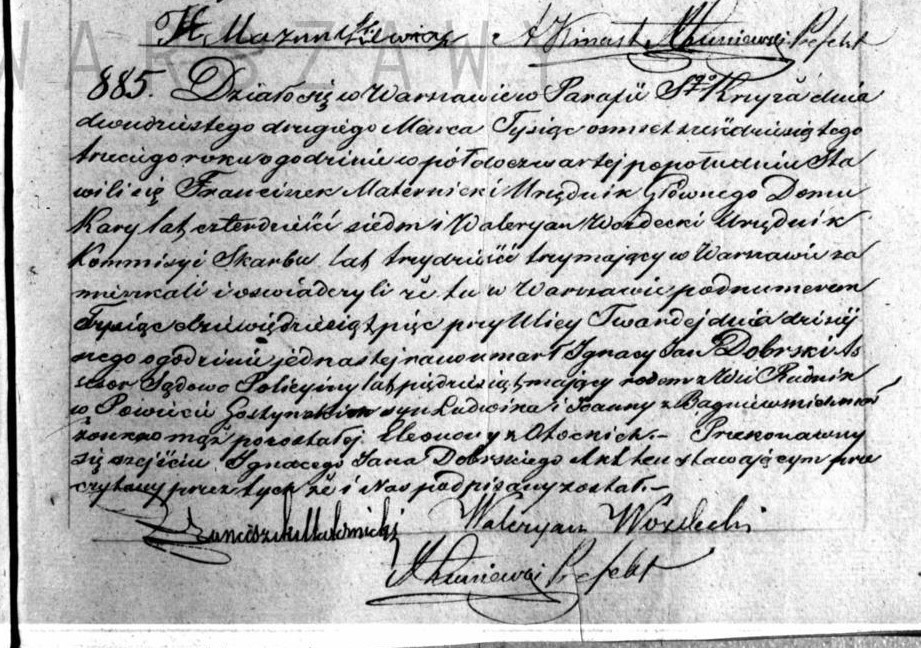 WARSZAWY
A Kinast Prefekt
885. Działo się w Warszawie w Parafii Sgo Krzyża dnia
dwudziestego drugiego Marca Tysiąc ośmset sześdziesiątego
trzeciego roku o godzinie w pół do czwartej po południu Sta
wili się Franciszek Maternicki Urzędnik Głównego Domu
Kary lat czterdzieści siedm i Waleryan Wozdecki Urzędnik
Kommisyi Skarbu lat trzydzieści trzymający w Warszawie za
mieszkali i oswiadczyli że tu w Warszawie pod numerem
Tysiąc dziewiędziesiąt pięc przy Ulicy Twardej dnia dzisiej
szego o godzinie jednastej rano umarł Ignacy Jan Dobrski As
sesor Sądowo Policyiny lat piędziesiąt mający rodem z Wsi Rudnik
w Powiecie syn Ludwika i Joanny z
żonkow mąż pozostałej Eleonory z Otockich.— Przekonawszy
się o zejściu Ignacego Jana Dobrskiego Akt ten stawającym prze
czytany przez tych że i Nas podpisany został.—
Franciszek Maternicki Waleryan Wozdecki
Prefekt